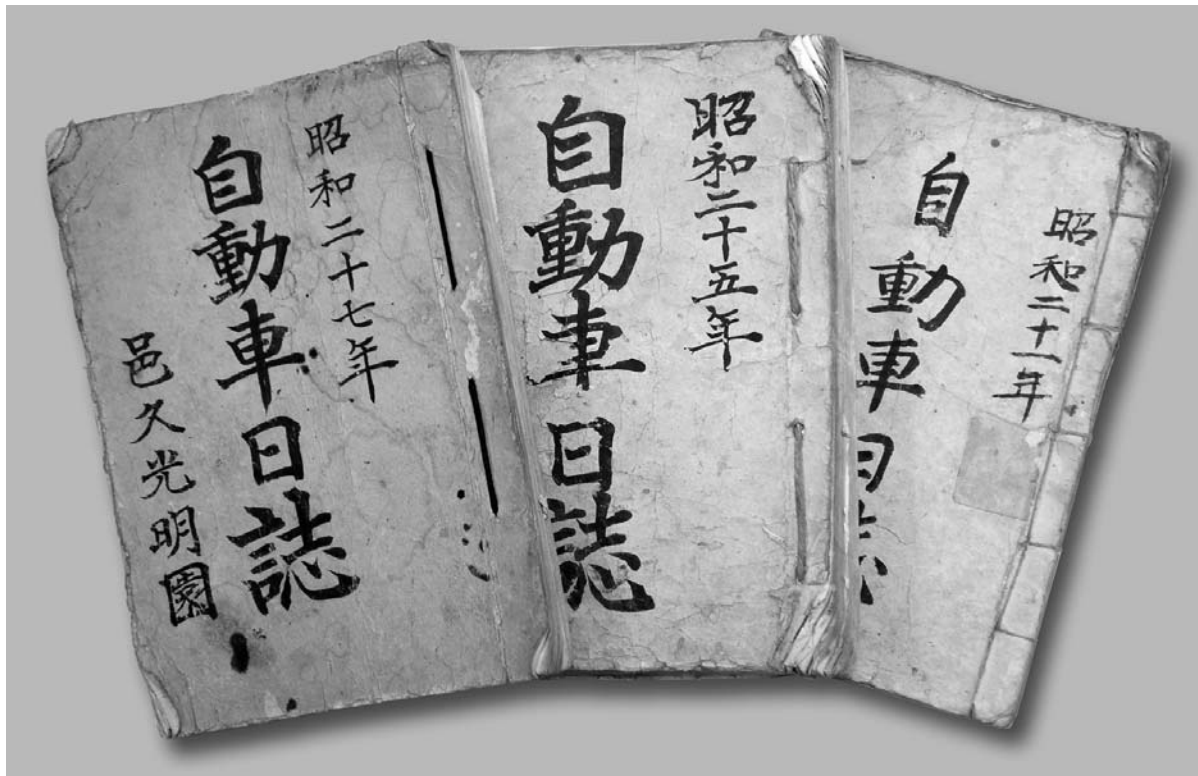 昭和二十七年
自動車日誌
邑久光明園
昭和二十五年
自動車日誌
昭和二十一年
自動車日誌